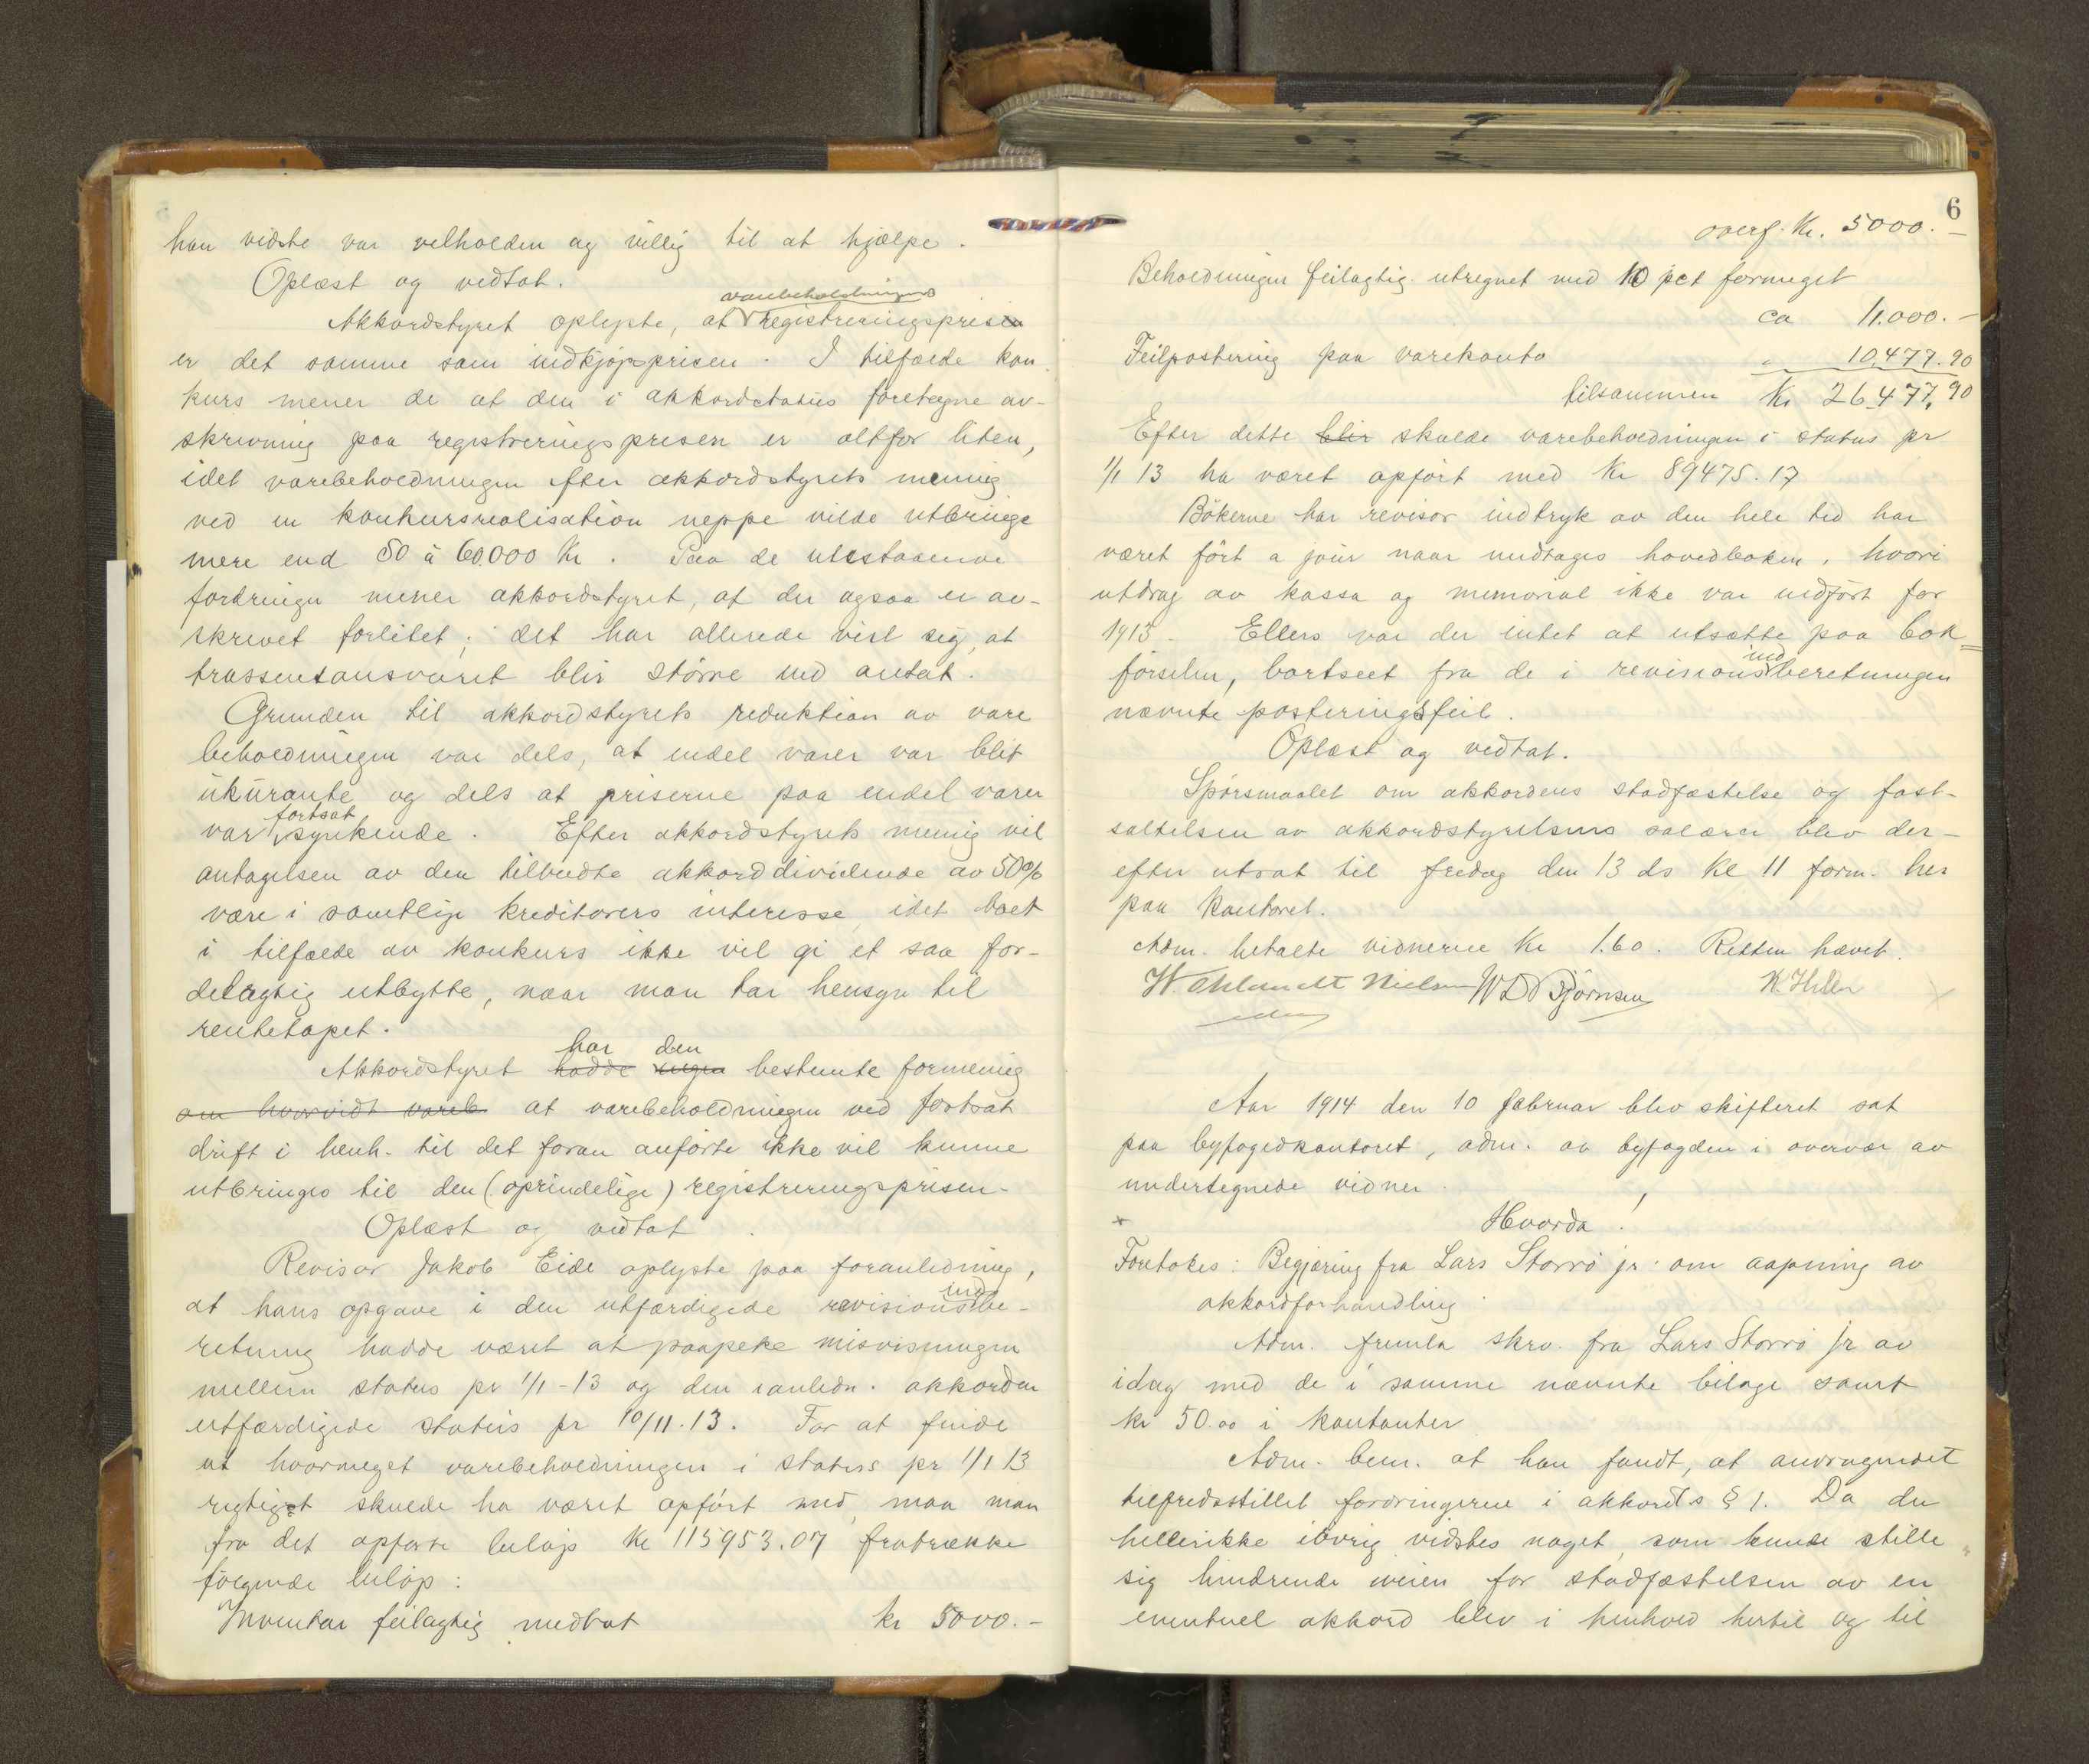 han vidste var velholden og villig til at hjælpe.
Oplæst og vedtat.
varebeholdningens
Akkordstyret oplyste, at registreringsprisen
er det samme som indkjøpsprisen. I tilfælde kon
kurs mener de at den i akkordstatus foretagne av-
skrivning paa registreringsprisen er altfor liten,
idet varebeholdningen efter akkordstyrets mening
ved en konkursrealisation neppe vilde utbringe
mere end 50 à 60.000 Kr. Paa de utestaaende
fordringer mener akkordstyret, at der ogsaa er av-
skrevet forlitet; det har allerede vist sig, at
trassentansvaret blir større end antat.
Grunden til akkordstyrets reduktion av vare
beholdningen var dels, at endel varer var blit
ukurante og dels at priserne paa endel varer
fortsat
var synkende. Efter akkordstyrets mening vil
antagelsen av den tilbudte akkorddividende av 50%
være i samtlige kreditorers interesse, idet boet
i tilfælde av konkurs ikke vil gi et saa for-
delagtig utbytte, naar man tar hensyn til
rentetapet.
har den
Akkordstyret hadde ingen bestemte formening
om hvorvidt vareb. at varebeholdningen ved fortsat
drift i henh. til det foran anførte ikke vil kunne
utbringes til den (oprindelige) registreringsprisen.
Oplæst og vedtat.
Revisor Jakob Eide oplyste paa foranledning,
ind
at hans opgave i den utfærdigede revisionsbe-
retning hadde været at paapeke misvisningen
mellem status pr 1/1-13 og den i anledn. akkorden
utfærdigede status pr 10/11.13. For at finde
ut hvormeget varebeholdningen i status pr 1/1 13
rigtigst skulde ha været opført med, maa man
fra det opførte beløp Kr 115953.07 fratrække
følgende beløp:
Inventar feilagtig medtat kr 5000.-
6
overf. Kr. 5000.-
Beholdningen feilagtig utregnet med 10 pct formeget
ca 11.000.-
Feilpostering paa varekonto " 10,477.90
tilsammen Kr 26,477,90
Efter dette blir skulde varebeholdningen i status pr
1/1 13 ha været opført med Kr 89475.17
Bøkerne har revisor indtryk av den hele tid har
været ført a jour naar undtages hovedboken, hvori
utdrag av kassa og memorial ikke var indført for
1913. Ellers var der intet at utsætte paa bok=
ind
førselen, bortseet fra de i revisionsberetningen
nævnte posteringsfeil.
Oplæst og vedtat.
Spørsmaalet om akkordens stadfæstelse og fast-
sættelsen av akkordstyrelsens salærer blev der-
efter utsat til fredag den 13 ds kl 11 form. her
paa kontoret.
Adm. betalte vidnerne Kr 1.60. Retten hævet.
W. Ahlmdt Nielsen W D Bjørnsen
Aar 1914 den 10 februar blev skifteret sat
paa byfogedkontoret, adm. av byfogden i overvær av
undertegnede vidner.
Hvorda!
Foretokes: Begjæring fra Lars Storrø jr. om aapning av
akkordforhandling.
Adm. fremla skrv. fra Lars Storrø jr av
idag med de i samme nævnte bilage samt
kr 50.00 i kontanter
Adm. bem. at han fandt, at andragendet
tilfredsstillet fordringerne i akkordls § 1. Da der
hellerikke iøvrig vidstes noget, som kunde stille
sig hindrende iveien for stadfæstelsen av en
eventuel akkord blev i henhold hertil og til